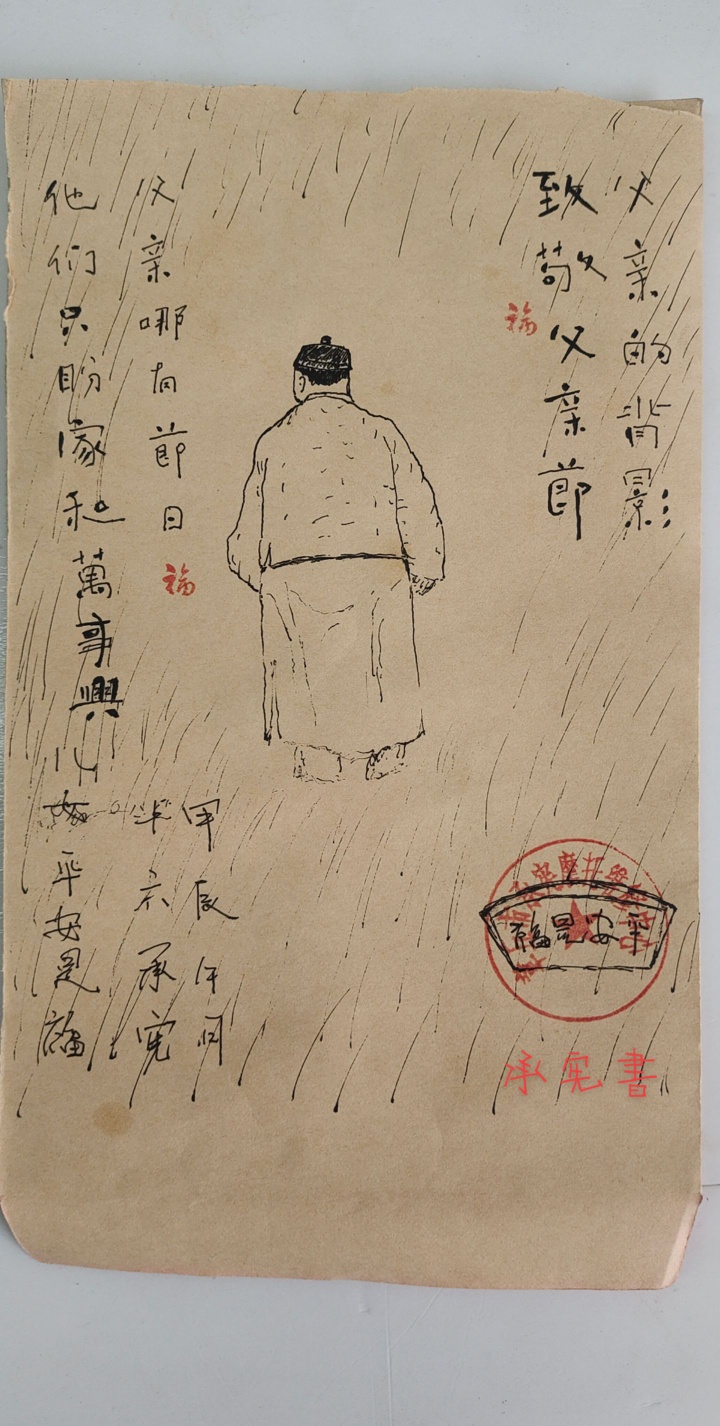 父亲的背影
致敬父亲節
福
父亲哪有節日
福
他们只盼家和萬事興
平安是福
甲辰午间
承宪
平安是福
承宪書